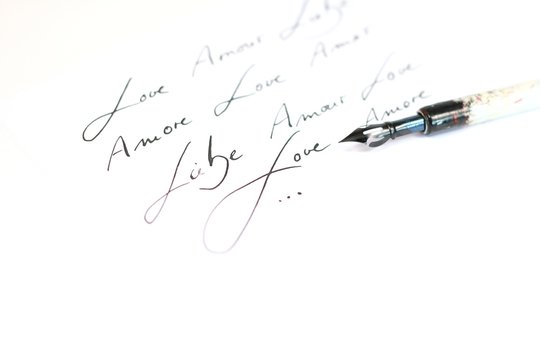 Love Amour Liebe
Amore Love Amor
Liebe Amour Love
Love Amore
...